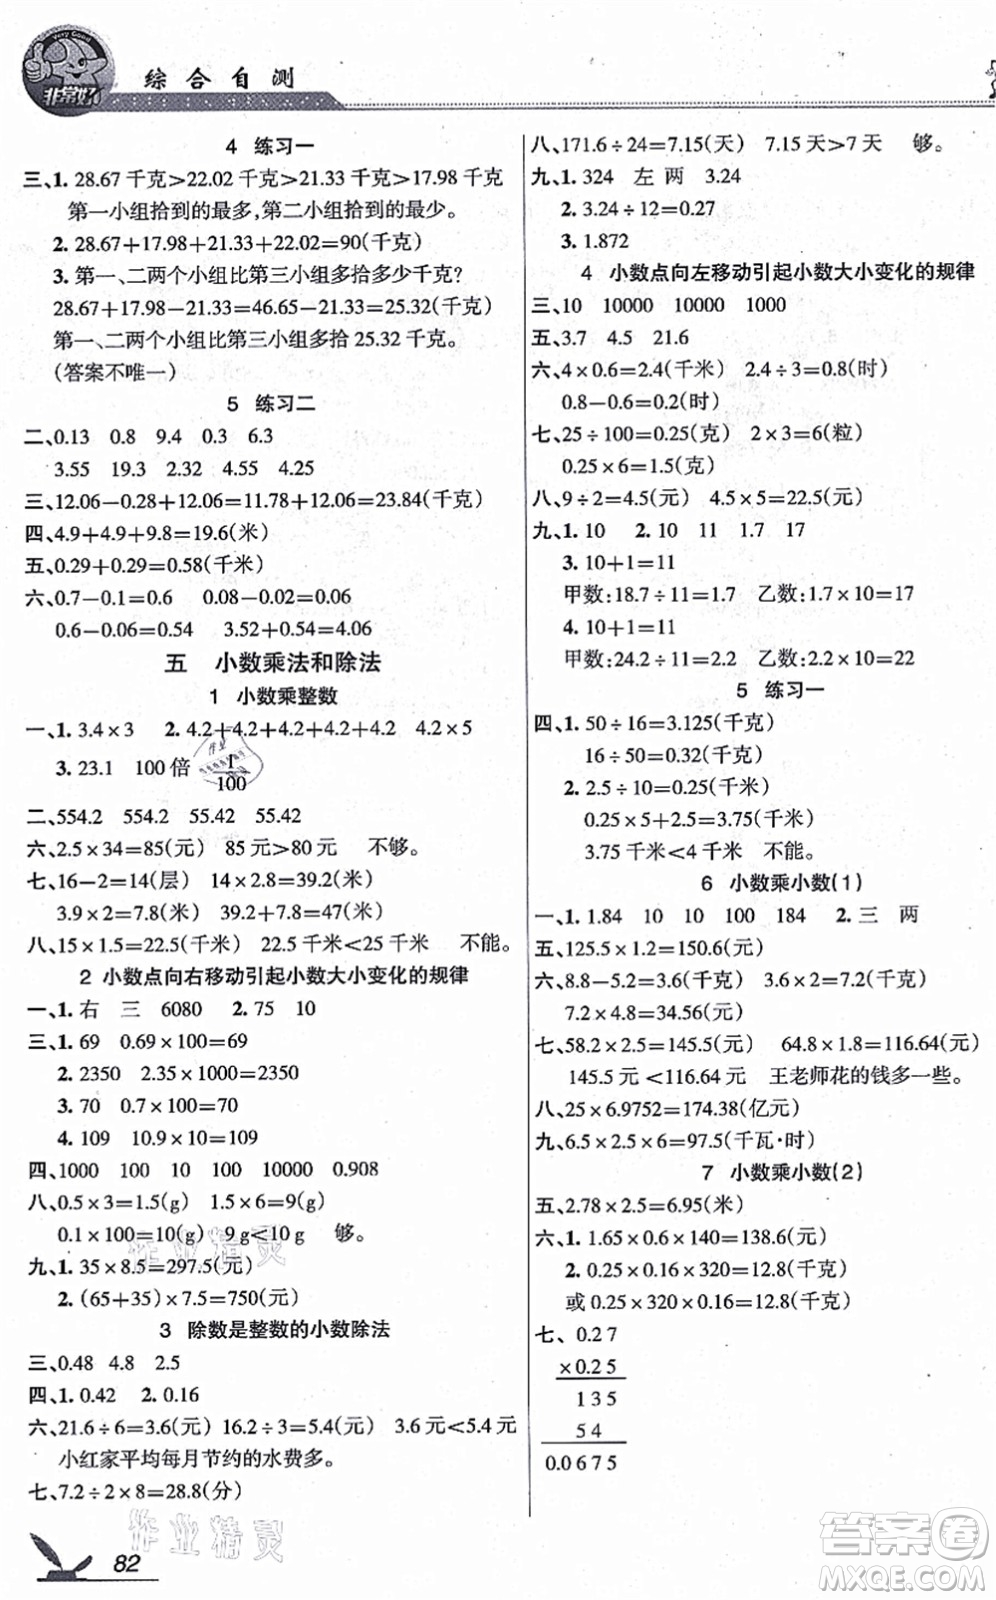 Very Good
非常好
综合自测
4 练习一
三、1. 28.67千克>22.02千克>21.33千克>17.98千克
第一小组拾到的最多,第二小组拾到的最少。
2. 28.67+17.98+21.33+22.02=90(千克)
3. 第一、二两个小组比第三小组多拾多少千克?
28.67+17.98-21.33=46.65-21.33=25.32(千克)
第一、二两个小组比第三小组多拾 25.32 千克。
(答案不唯一)
5 练习二
二、0.13 0.8 9.4 0.3 6.3
3.55 19.3 2.32 4.55 4.25
三、12.06-0.28+12.06=11.78+12.06=23.84(千克)
四、4.9+4.9+9.8=19.6(米)
五、0.29+0.29=0.58(千米)
六、0.7-0.1=0.6 0.08-0.02=0.06
0.6-0.06=0.54 3.52+0.54=4.06
五 小数乘法和除法
1 小数乘整数
一、1. 3.4×3 2. 4.2+4.2+4.2+4.2+4.2 4.2×5
3. 23.1 100倍 1/100
二、554.2 554.2 55.42 55.42
六、2.5×34=85(元) 85元>80元 不够。
七、16-2=14(层) 14×2.8=39.2(米)
3.9×2=7.8(米) 39.2+7.8=47(米)
八、15×1.5=22.5(千米) 22.5千米<25千米 不能。
2 小数点向右移动引起小数大小变化的规律
一、1. 右 三 6080 2. 75 10
三、1. 69 0.69×100=69
2. 2350 2.35×1000=2350
3. 70 0.7×100=70
4. 109 10.9×10=109
四、1000 100 10 100 10000 0.908
八、0.5×3=1.5(g) 1.5×6=9(g)
0.1×100=10(g) 9g<10g 够。
九、1. 35×8.5=297.5(元)
2. (65+35)×7.5=750(元)
3 除数是整数的小数除法
三、0.48 4.8 2.5
四、1. 0.42 2. 0.16
六、21.6÷6=3.6(元) 16.2÷3=5.4(元) 3.6元<5.4元
小红家平均每月节约的水费多。
七、7.2÷2×8=28.8(分)
82
八、171.6÷24=7.15(天) 7.15天>7天 够。
九、1. 324 左 两 3.24
2. 3.24÷12=0.27
3. 1.872
4 小数点向左移动引起小数大小变化的规律
三、10 10000 10000 1000
五、3.7 4.5 21.6
六、4×0.6=2.4(千米) 2.4÷3=0.8(时)
0.8-0.6=0.2(时)
七、25÷100=0.25(克) 2×3=6(粒)
0.25×6=1.5(克)
八、9÷2=4.5(元) 4.5×5=22.5(元)
九、1. 10 2. 10 11 1.7 17
3. 10+1=11
甲数:18.7÷11=1.7 乙数:1.7×10=17
4. 10+1=11
甲数:24.2÷11=2.2 乙数:2.2×10=22
5 练习一
四、1. 50÷16=3.125(千克)
16÷50=0.32(千克)
2. 2.5÷10=0.25(千米)
0.25×5+2.5=3.75(千米)
3.75千米<4千米 不能。
6 小数乘小数(1)
一、1. 1.84 10 10 100 184 2. 三 两
五、125.5×1.2=150.6(元)
六、8.8-5.2=3.6(千克) 3.6×2=7.2(千克)
7.2×4.8=34.56(元)
七、58.2×2.5=145.5(元) 64.8×1.8=116.64(元)
145.5元<116.64元 王老师花的钱多一些。
八、25×6.9752=174.38(亿元)
九、6.5×2.5×6=97.5(千瓦·时)
7 小数乘小数(2)
五、2.78×2.5=6.95(米)
六、1. 1.65×0.6×140=138.6(元)
2. 0.25×0.16×320=12.8(千克)
或 0.25×320×0.16=12.8(千克)
七、 0.27
×0.25
135
54
0.0675
作业精灵
作业精灵
答案圈
MXQE.COM